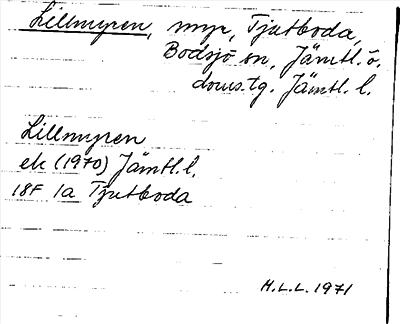 Lillmyren, myr, Tjutboda,
Bodsjö sn, Jämtl. ö.
doms.tg. Jämtl. l.
Lillmyren
ek (1970) Jämtl. l.
18F 1a Tjutboda
H.L.L. 1971